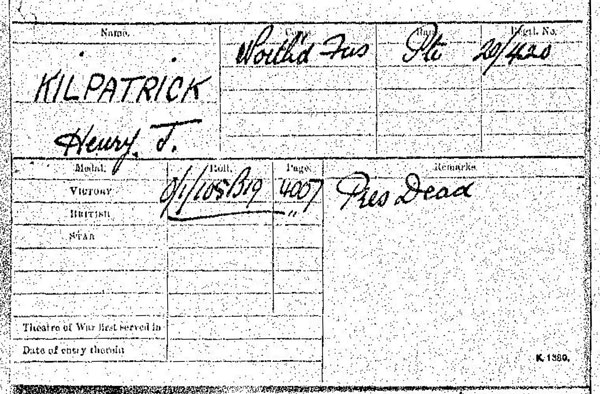 Name. Corps. Rank. Regtl. No.
North'd Fus Pte 20/420
KILPATRICK
Henry. J.
Medal. Roll. Page. Remarks.
VICTORY 0/1/105B19 4007 Pres Dead
BRITISH " 
STAR
Theatre of War first served in
Date of entry therein
K. 1380.